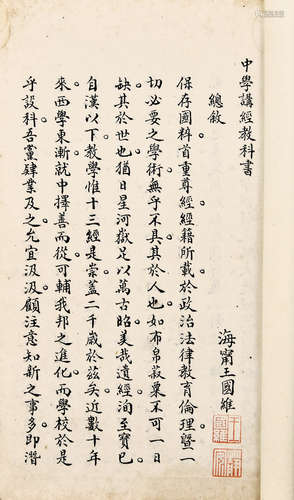 中學講經教科書
總敘
海甯王國維
保存國粹首重尊經經籍所載於政治法律教育倫理暨一
切必要之學術無乎不具其於人也如布帛菽粟不可一日
缺其於世也猶日星河嶽足以萬古昭美哉遺經洵至寶已
自漢以下教學惟十三經是崇蓋二千歲於茲矣近數十年
來西學東漸就中擇善而從可輔我邦之進化而學校於是
乎設科吾黨肄業及之允宜汲汲顧注意知新之事多即潛